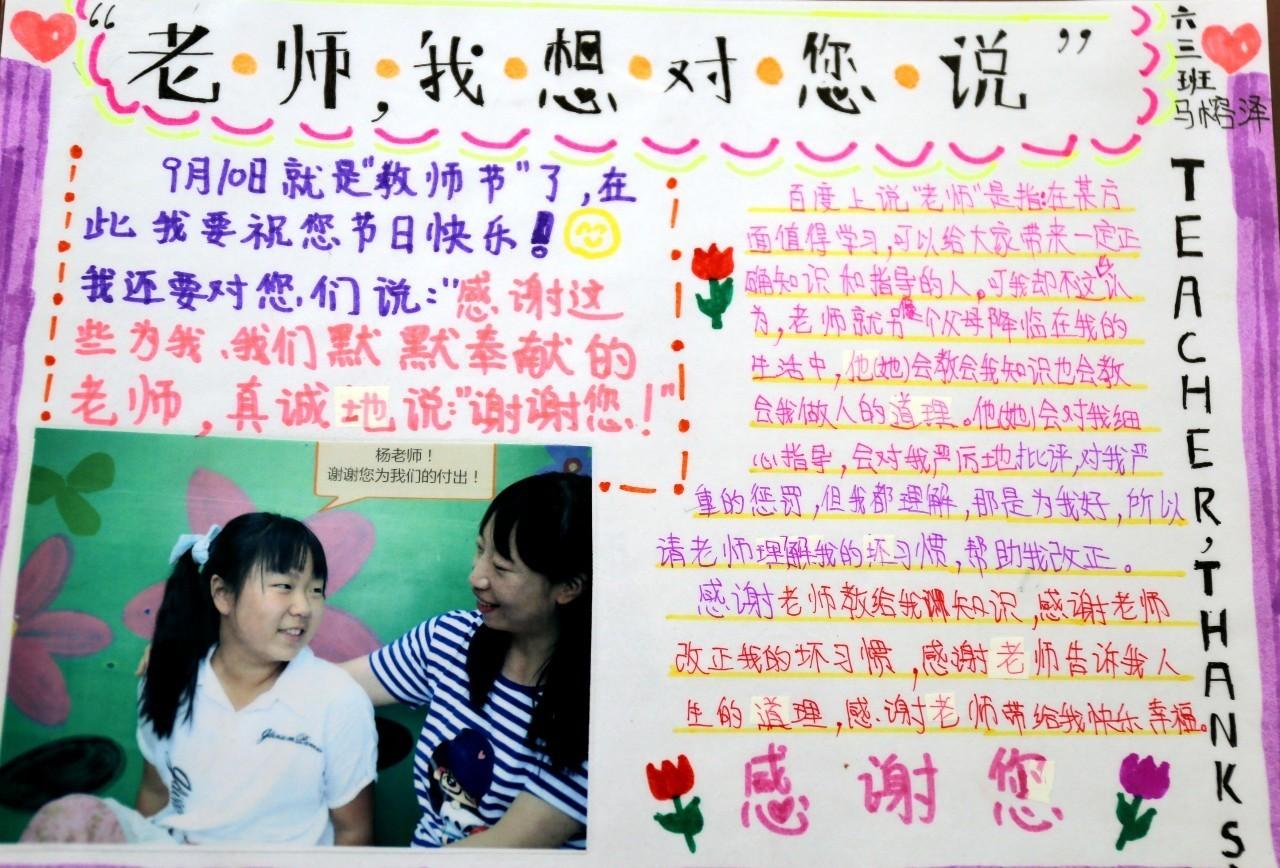 “老·师,我·想·对·您·说”
六三班
马榕泽
9月10日就是“教师节”了,在
此我要祝您节日快乐!
我还要对您们说:“感谢这
些为我、我们默默奉献的
老师,真诚地说:“谢谢您!”
杨老师!
谢谢您为我们的付出!
百度上说“老师”是指:在某方
面值得学习,可以给大家带来一定正
确知识和指导的人。可我却不这么认
为,老师就另像个父母降临在我的
生活中,他(她)会教会我知识也会教
会我做人的道理。他(她)会对我细
心指导,会对我严厉地批评,对我严
重的惩罚,但我都理解,那是为我好,所以
请老师理解我的坏习惯,帮助我改正。
感谢老师教给我课知识,感谢老师
改正我的坏习惯,感谢老师告诉我人
生的道理,感谢老师带给我快乐幸福。
感谢您
TEACHER,THANKS